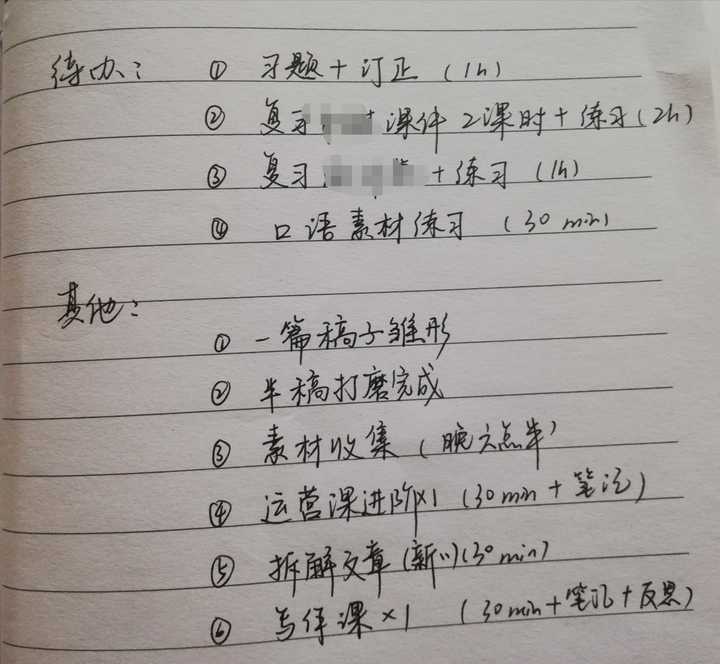 待办： ① 习题＋订正（1h）
② 复习 课件 2课时＋练习（2h）
③ 复习 ＋练习（1h）
④ 口语素材练习（30 min）
其他：
① 一篇稿子雏形
② 半稿打磨完成
③ 素材收集（晚六点半）
④ 运营课进阶×1（30min＋笔记）
⑤ 拆解文章（新）（30min）
⑥ 写作课×1（30min＋笔记＋反思）